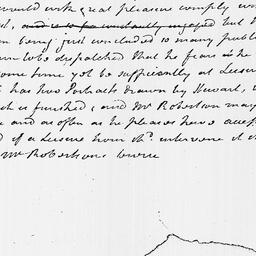 would with great pleasure comply w
d, and is so constantly engaged but t
n being just concluded so many publi
to be dispatched that he fears in the
some time yet be sufficiently at Leisure
has two Portraits drawn by Stewart,
is finished, and Mr Robertson may
and as often as he pleases have acce
of a Leisure hour shd. intervene it
Mr Robertsons